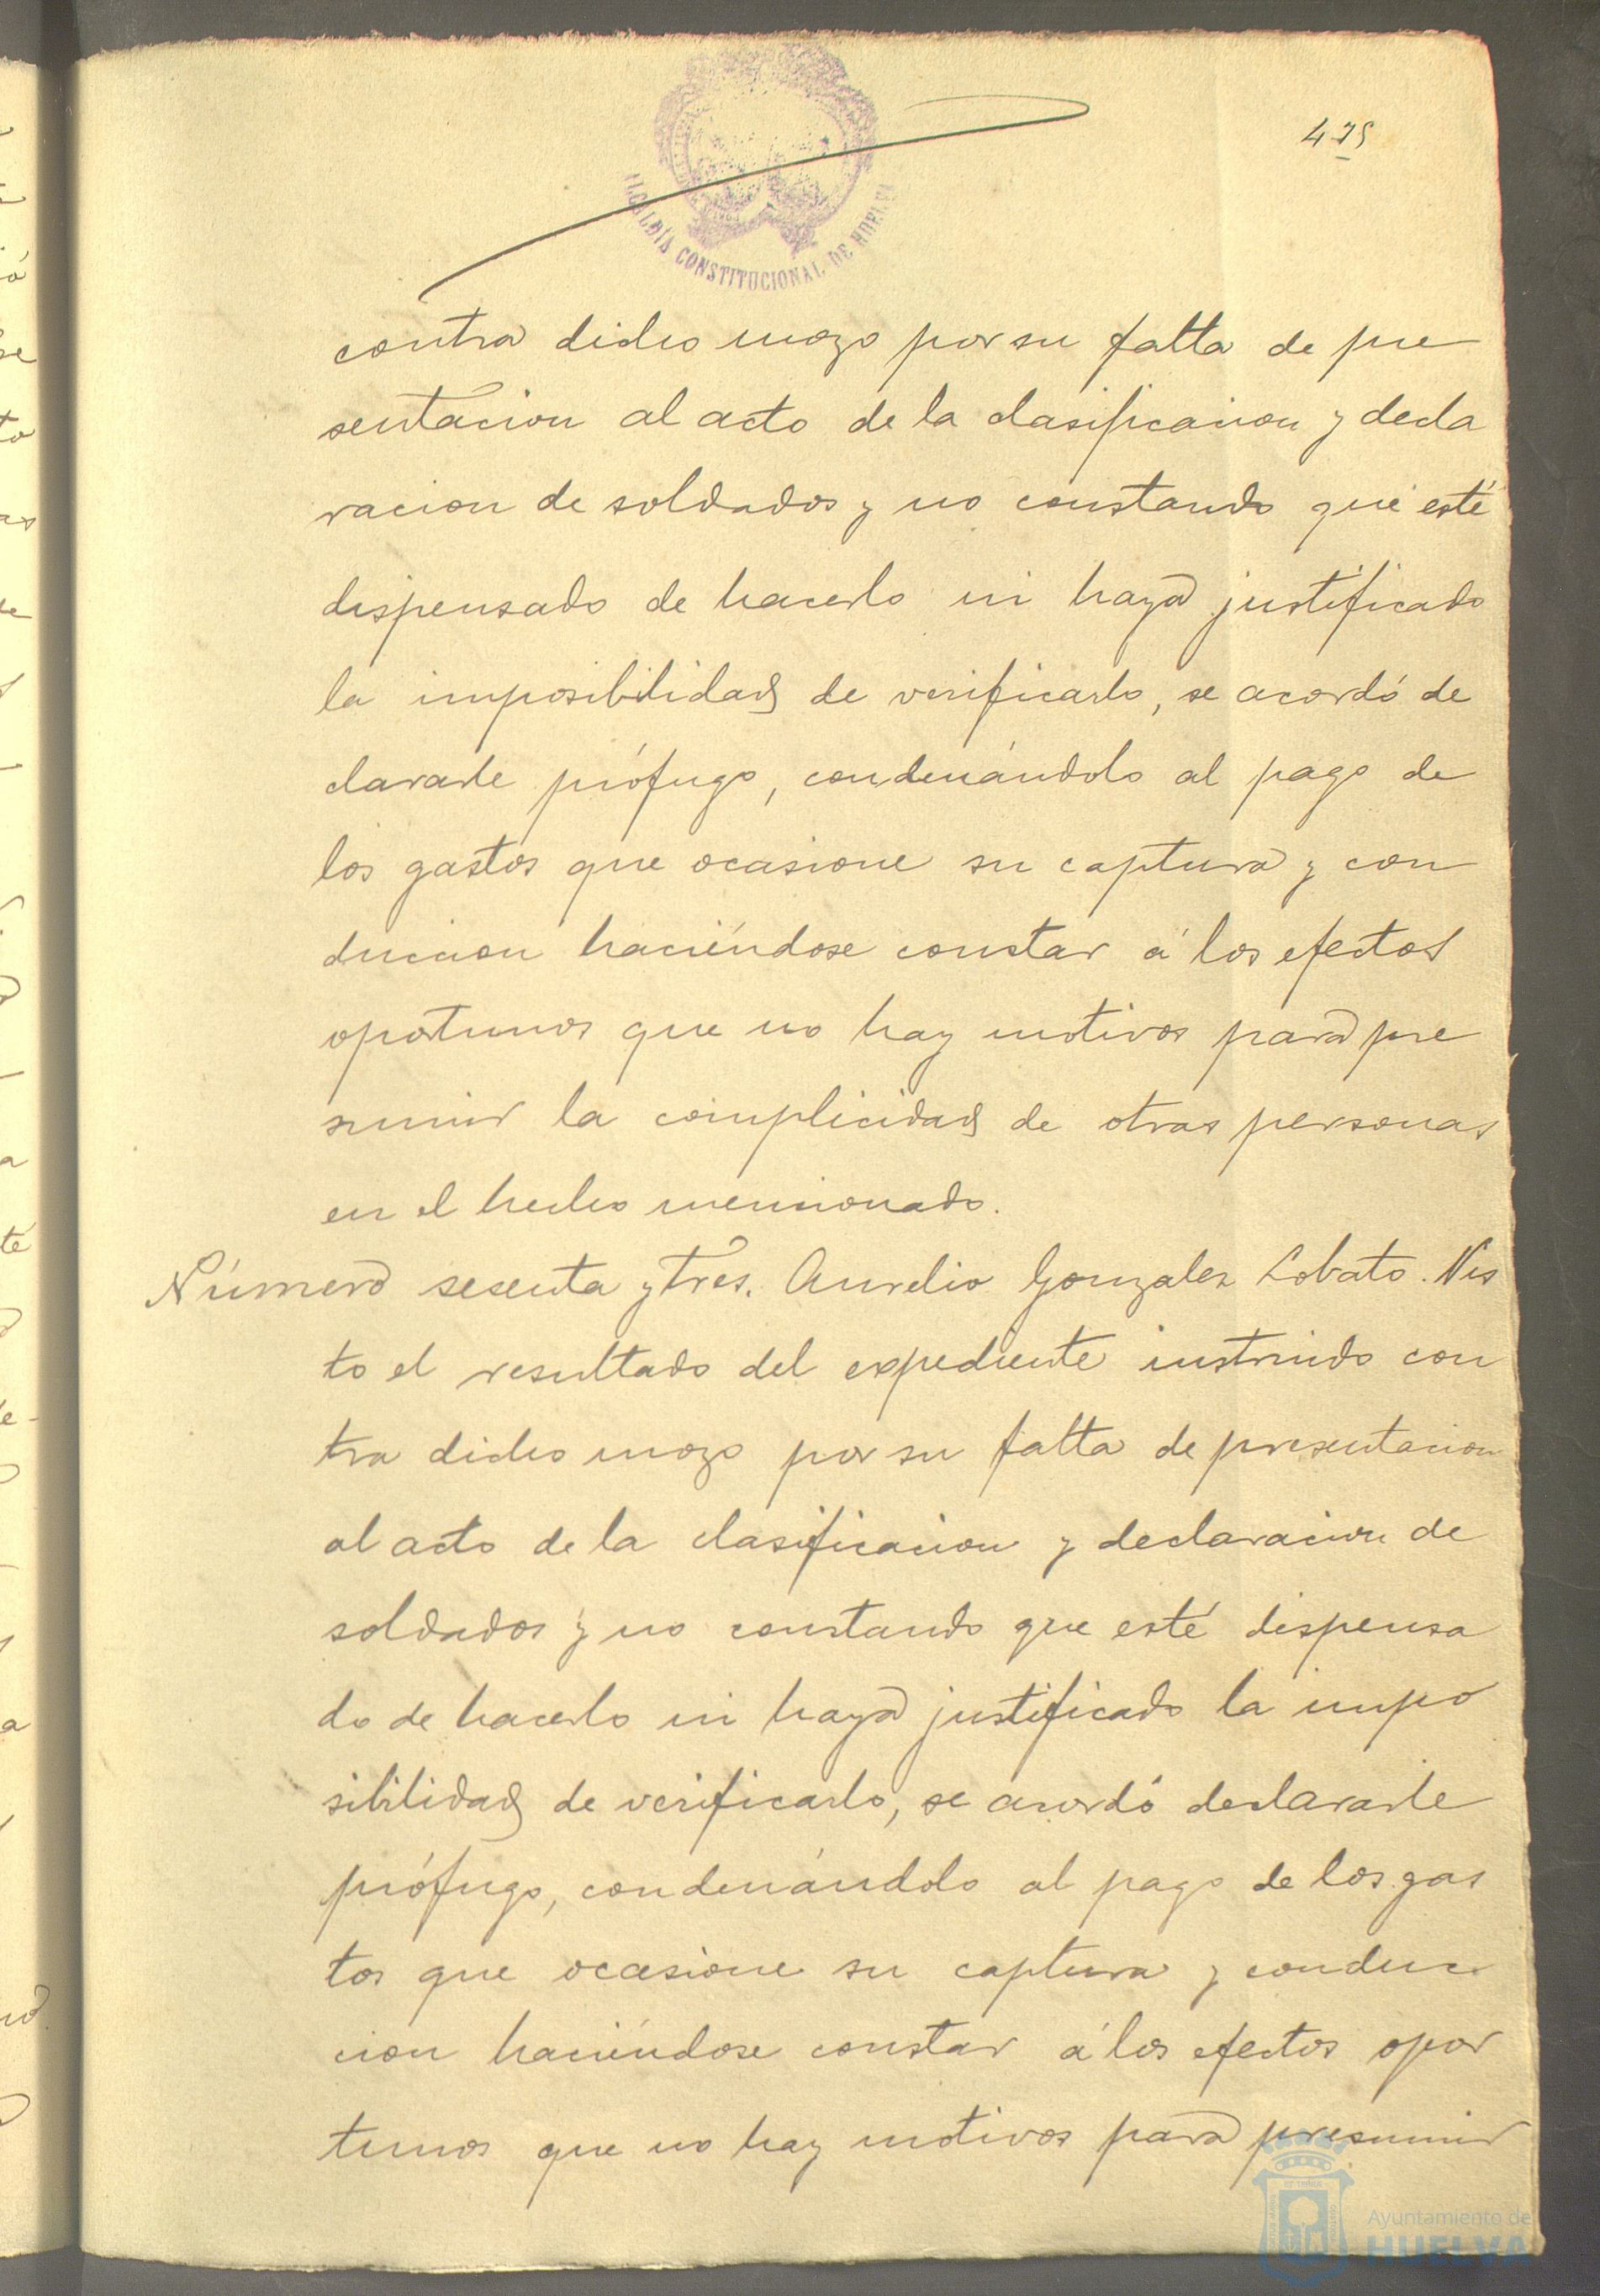 475
ALCALDÍA CONSTITUCIONAL DE HUELVA
contra dicho mozo por su falta de pre
sentacion al acto de la clasificacion y decla
racion de soldados y no constando que esté
dispensado de hacerlo ni haya justificado
la imposibilidad de verificarlo, se acordó de
clararle prófugo, condenándolo al pago de
los gastos que ocasione su captura y con
duccion haciéndose constar á los efectos
oportunos que no hay motivos para pre
sumir la complicidad de otras personas
en el hecho mencionado.
Número sesenta y tres. Aurelio Gonzalez Lobato. Vis
to el resultado del expediente instruido con
tra dicho mozo por su falta de presentacion
al acto de la clasificacion y declaracion de
soldados y no constando que esté dispensa
do de hacerlo ni haya justificado la impo
sibilidad de verificarlo, se acordó declararle
prófugo, condenándolo al pago de los gas
tos que ocasione su captura y conduc
cion haciéndose constar á los efectos opor
tunos que no hay motivos para presumir
Ayuntamiento de
HUELVA